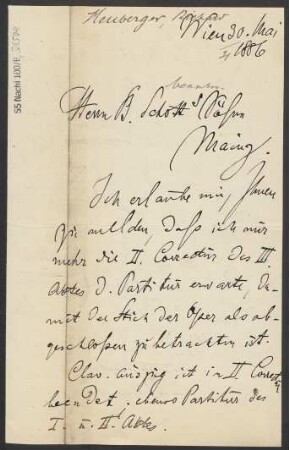 Heuberger, Richard
Wien 30. Mai
1886
Herrn B. Schott's Söhne
Mainz.
Ich erlaube mir, Ihnen
zu melden, daß ich nur
mehr die II. Correctur des III
Aktes d. Partitur erwarte, da-
mit der Stich der Oper als ab-
geschlossen zu betrachten ist.
Clav. auszug ist in II Correct
beendet. ebenso Partitur des
I. u. II Aktes.
55 Nachl 100/E,